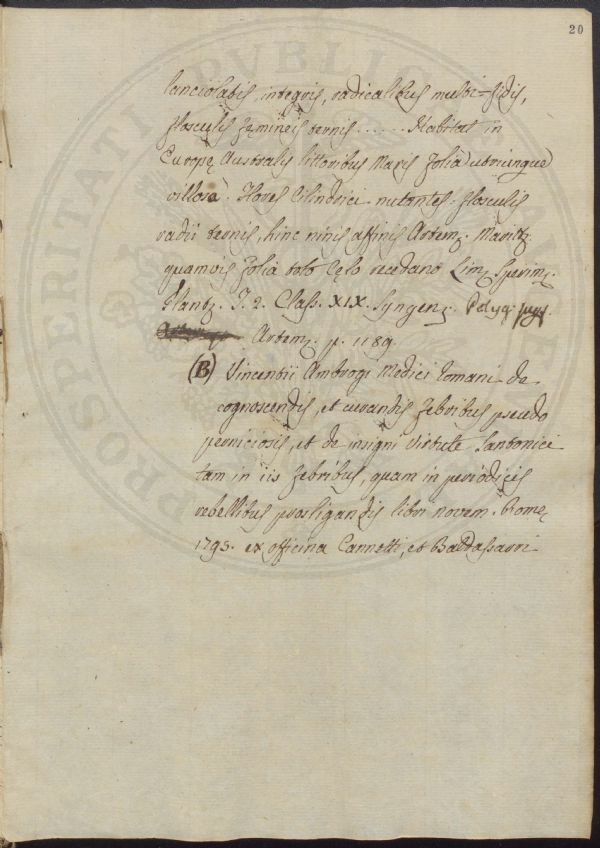 20
lanciolatis, integris, radicalibus multi-fidis,
flosculis fęmineis ternis ...... Habitat in
Europę Australis littoribus Maris folia utrinque
villosa. Flores Cilindrici nutantes: flosculis
radii ternis, hinc nimis affinis Artem. Maritę.
quamvis folia toto Cęlo recedano Linę Specim.
Plantę. T. 2. Class. XIX. Syngenę. Polyg.
Artemę. p. 1189.
(B) Vincentii Ambrogi Medici Romani de
cognoscendis, et curandis febribus pseudo
perniciosis, et de insigni virtute Santonici
tam in iis febribus, quam in periodicis
rebellibus profligandis libri novem. Romę
1795. ex officina Cannetti, et Baldassarri
PROSPERITATI PVBLICAE